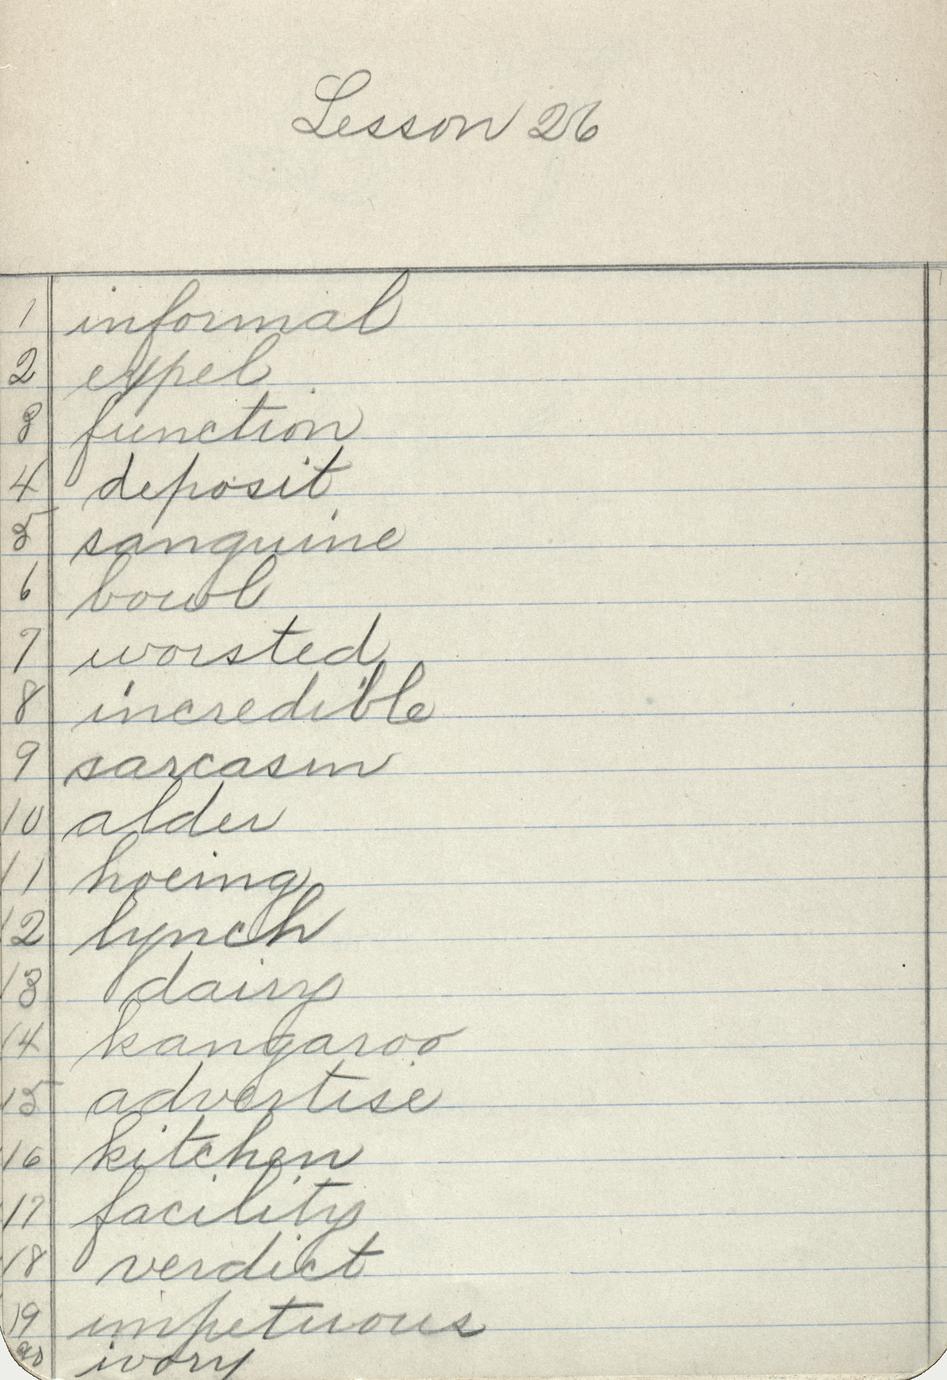 Lesson 26
1 informal
2 expel
3 function
4 deposit
5 sanguine
6 bowl
7 worsted
8 incredible
9 sarcasm
10 alder
11 hoeing
12 lynch
13 dairy
14 kangaroo
15 advertise
16 kitchen
17 facility
18 verdict
19 impetuous
20 ivory